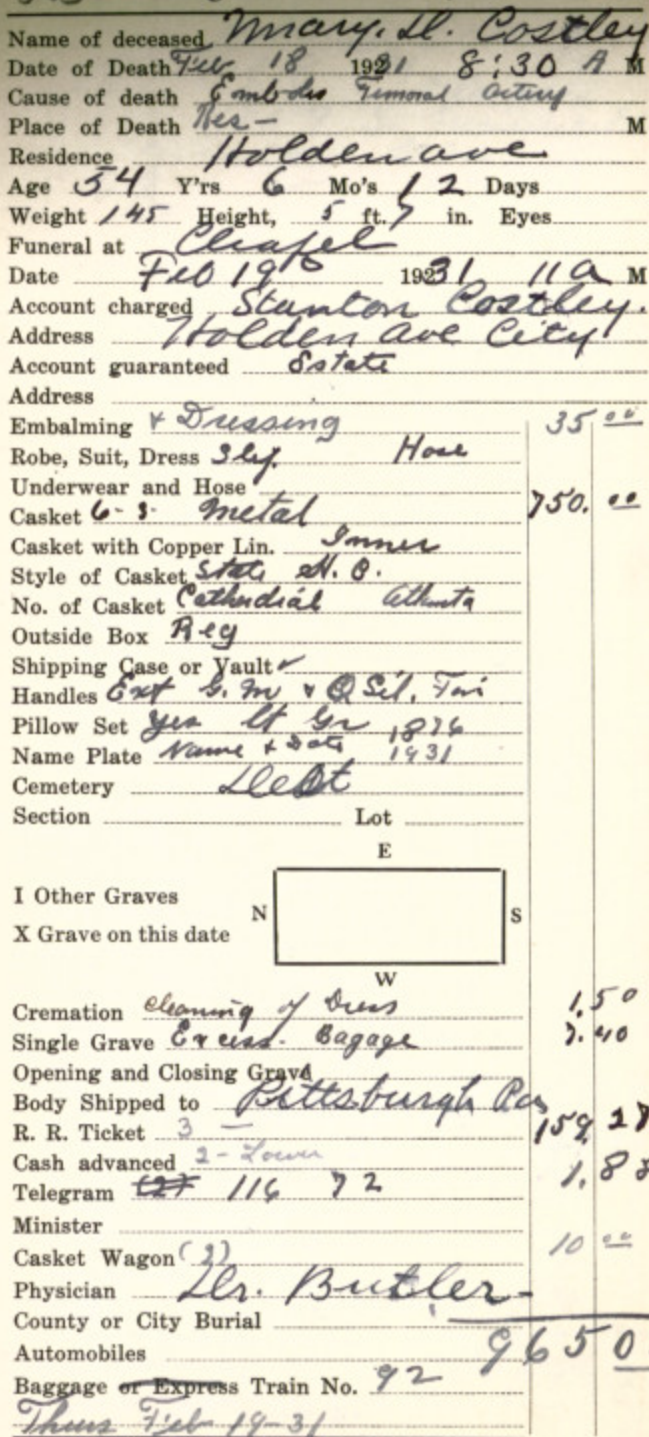 Name of deceased Mary. H. Costley
Date of Death Feb 18 1931 8:30 A M
Cause of death Embolis Femoral artery
Place of Death Res - M
Residence Holden ave
Age 54 Y'rs 6 Mo's 12 Days
Weight 145 Height, 5 ft. 7 in. Eyes
Funeral at Chapel
Date Feb 19 1931 11 a M
Account charged Stanton Costley.
Address Holden ave City
Account guaranteed Estate
Address
Embalming + Dressing 35 00
Robe, Suit, Dress Slip. Hose
Underwear and Hose
Casket 6-3 metal 750. 00
Casket with Copper Lin. Inner
Style of Casket State
No. of Casket Cathedial
Outside Box Reg
Shipping Case or Vault ✓
Handles Ext G. M + O Sil.
Pillow Set yes lt Gr 1876
Name Plate Name + Date 1931
Cemetery
Section Lot
E
I Other Graves
N S
X Grave on this date
W
Cremation cleaning of Dress 1.50
Single Grave Excess. Bagage 7.40
Opening and Closing Grave
Body Shipped to Pittsburgh Pa
R. R. Ticket 3 - 159 27
Cash advanced 2 - Lower
Telegram 116 72 1.83
Minister
Casket Wagon (2) 10 00
Physician Dr. Butler -
County or City Burial
Automobiles 965 0
Baggage or Express Train No. 92
Thurs Feb 19-31